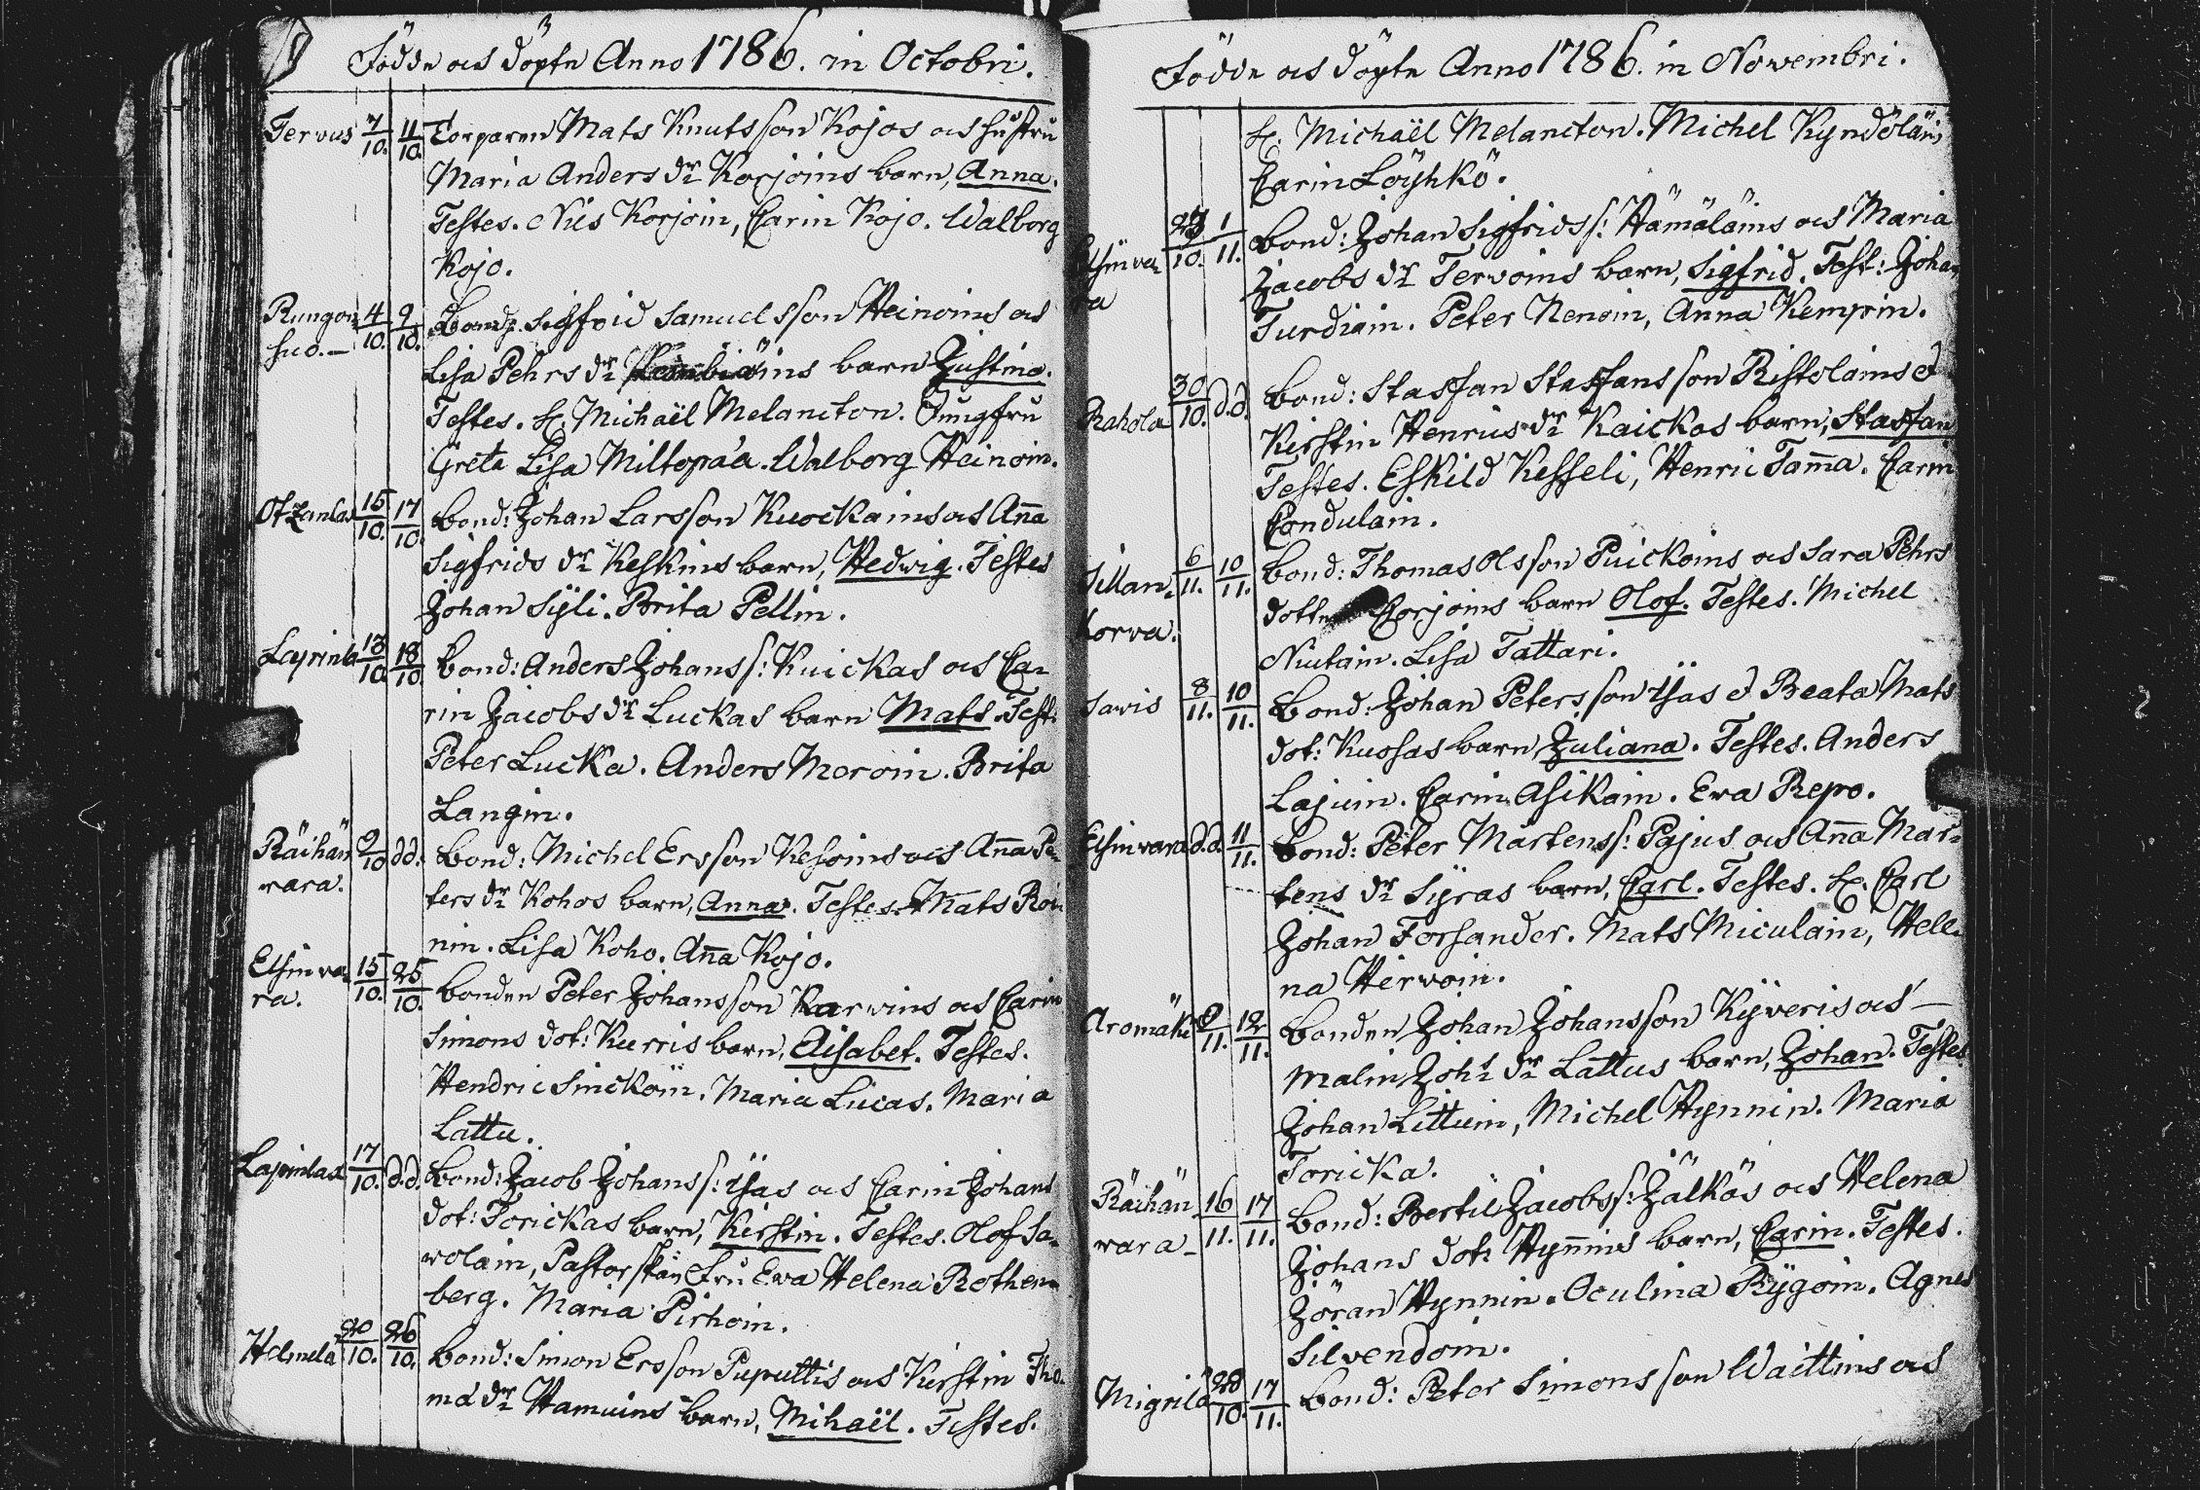 Födde och döpte Anno 1786. in Octobri.
Tervus 7/10. 11/10. Torparen Mats Knutsson Kojos och hustru
Maria Anders dr Korjoins barn, Anna.
Testes. Nils Korjoin, Carin Kojo. Walborg
Kojo.
Rungon 4/10. 9/10. Bond. Sigfrid Samuelsson Heinoins och
suo.— Lisa Pehrs dr barn Justina.
Testes. H. Michaël Melancton. Jungfru
Greta Lisa Miltopæa. Walborg Heinoin.
Otzanlax 15/10. 17/10. Bond: Johan Larsson Kuockains och Aña
Sigfrids dr Keskins barn, Hedwig. Testes
Johan Sÿli. Brita Pellin.
13/10 18/10 Bond: Anders Johans s: Kuickas och Ca-
rin Jacobs dr Luckas barn Mats. Test:
Peter Lucka. Anders Meroin. Brita
Langin.
Räihän 9/10 dd. Bond: Michel Ersson Kesoins och Aña Pe-
vara. ters dr Kohos barn, Anna. Testes. Mats Roi-
nin. Lisa Koho. Aña Kojo.
Elsinva- 15/10. 25/10. Bonden Peter Johansson Karvins och Carin
ra. Simons dot: Kurris barn, Elisabet. Testes.
Hendric Sinckoin. Maria Lucas. Maria
Lattu.
Lapinlax 17/10. d.d. Bond: Jacob Johans s: Ijas och Carin Johans
dot: Torickas barn, Kirstin. Testes. Olof Sa-
volain, Pastorskan Fru Eva Helena Rothen-
berg. Maria Pirhoin.
Helmela 20/10. 26/10. Bond: Simon Ersson Puputtis och Kirstin Tho-
mæ dr Hamuins barn, Mihaël. Testes.
Födde och döpte Anno 1786. in Novembri.
H. Michaël Melancton. Michel Kyndöläin,
Carin Löyhkö.
Elsinva- 10. 1/11. Bond: Johan Sigfrids s: Hämäläins och Maria
ra Jacobs dr Tervoins barn, Sigfrid. Test: Johan
Turdiain. Peter Nenoin, Anna Kempin.
Rahola 30/10. d.d. Bond: Staffan Staffansson Ristolains et
Kirstin Henrics dr Kaickos barn, Staffan
Testes. Eskild Kesseli, Henric Tam̄a. Carin
Condulain.
Tillan- 6/11. 10/11. Bond: Thomas Olsson Puickoins och Sara Pehrs
korva. dotter Corjoins barn Olof. Testes. Michel
Niulain. Lisa Tattari.
Savis 8/11. 10/11. Bond: Johan Petersson Ijas et Beata Mats
dot: Kuosas barn, Juliana. Testes. Anders
Lajuin. Carin Asikain. Eva Repo.
Elsinvara d.d. 11/11. Bond: Peter Mårtens s: Pajus och Aña Mar-
tens dr Sÿras barn, Carl. Testes. H. Carl
Johan Forsander. Mats Miculain, Hele-
na Hirvoin.
Aromäki 9/11. 12/11. Bonden Johan Johansson Kÿveris och —
Malin Joh: dr Lattus barn, Johan. Testes
Johan Littuin, Michel Hynnin. Maria
Toricka.
Räihän 16/11. 17/11. Bond: Bertil Jacobs s: Jälkös och Helena
vara — Johans dot: Hyn̄ins barn, Carin. Testes.
Jöran Hynnin. Oculina Rÿgoin. Agnes
Silvendoin.
Migrilä 28/10. 17/11. Bond: Peter Simonsson Waittins och